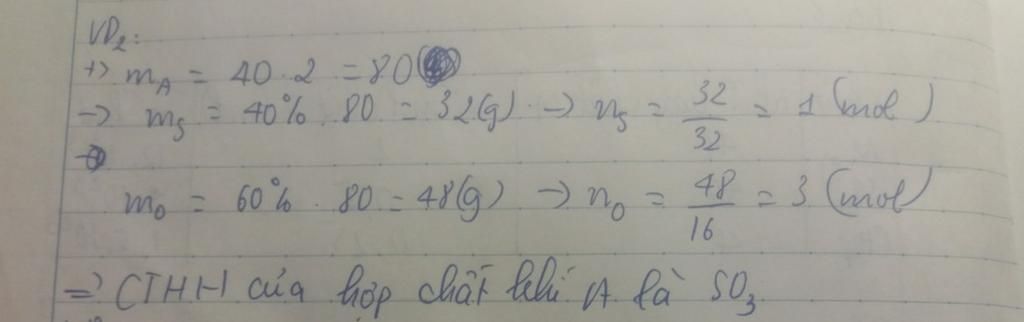 VD2:
+) mA = 40 . 2 = 80
-> mS = 40% . 80 = 32(g) -> nS = 32/32 = 1 (mol)
->
mO = 60% . 80 = 48(g) -> nO = 48/16 = 3 (mol)
=> CTHH của hợp chất khí A là SO3